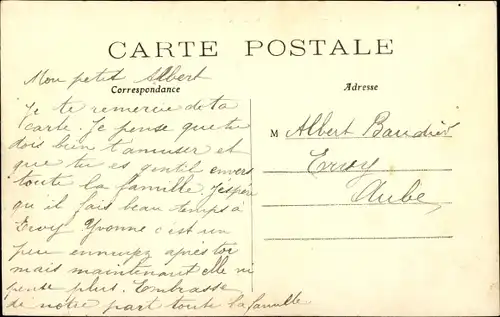 CARTE POSTALE
Correspondance
Adresse
Mon petit Albert
Je te remercie de ta
carte. Je pense que tu
dois bien t'amuser et
que tu es gentil envers
toute la famille. J'espère
qu'il fait beau temps à
Ervy Yvonne c'est un
peu ennuyez après toi
mais maintenant elle ni
pense plus. Embrasse
de notre part toute la famille
M Albert
Ervy
Aube